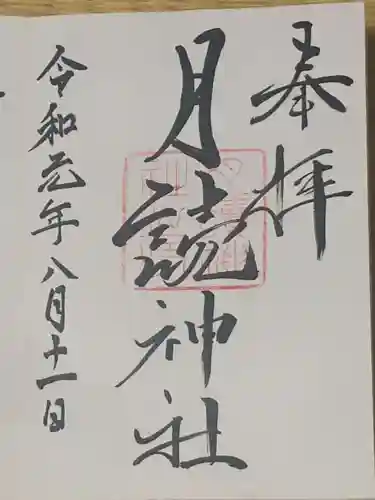 奉拝
月読神社
令和元年八月十一日